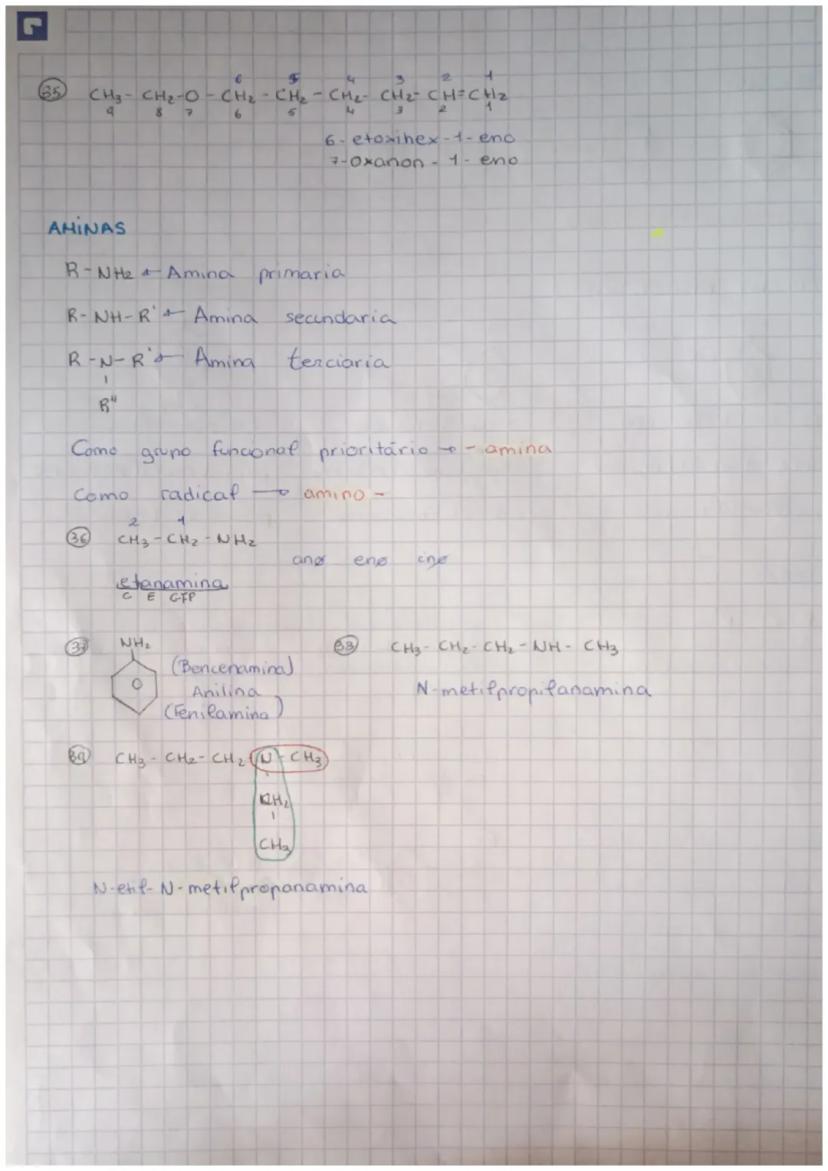 6 5 4 3 2 1
35 CH3 - CH2-O - CH2 - CH2 - CH2- CH2- CH=CH2
9 8 7 6 5 4 3 2 1
6-etoxihex-1-eno
7-Oxanon-1-eno
AMINAS
R-NH2 ← Amina primaria
R-NH-R' ← Amina secundaria
R-N-R' ← Amina terciaria
R"
Como grupo funcional prioritário → -amina
Como radical → amino-
2 1
36 CH3-CH2-NH2
ano eno ino
etanamina
C E GFP
37 NH2
(Bencenamina)
Anilina
(Fenilamina)
38 CH3-CH2-CH2-NH-CH3
N-metilpropilanamina
39 CH3-CH2-CH2-N-CH3
CH2
CH3
N-etil-N-metilpropanamina